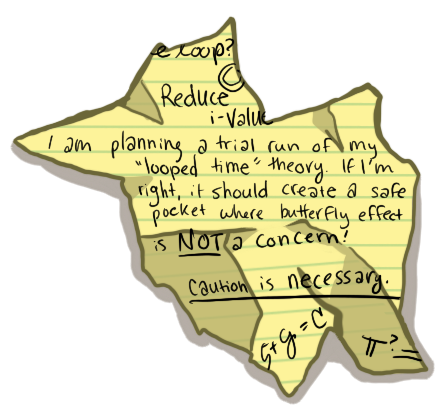 e loop?
©
Reduce
i-Value
I am planning a trial run of my
"looped time" theory. If I'm
right, it should create a safe
pocket where butterfly effect
is NOT a concern!
Caution is necessary.
π?=